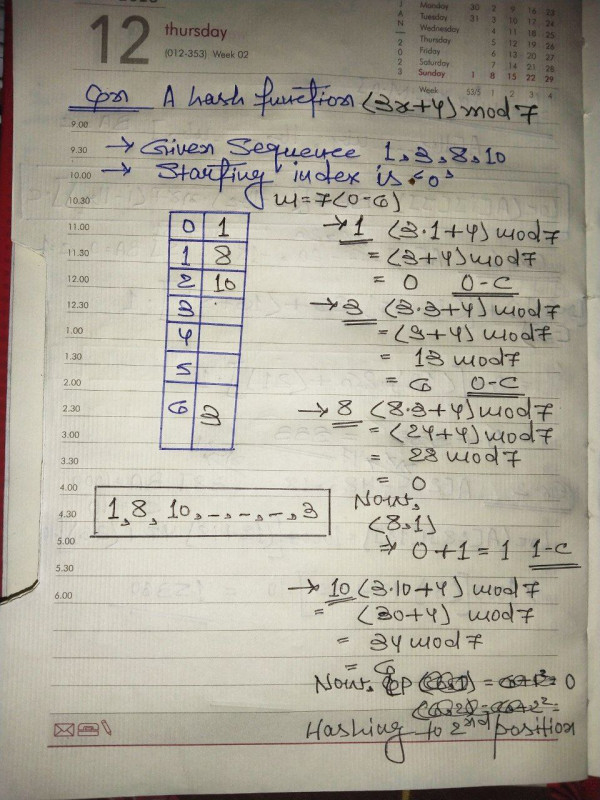 12 thursday
(012-353) Week 02
JAN 2023
Monday 30 2 9 16 23
Tuesday 31 3 10 17 24
Wednesday 4 11 18 25
Thursday 5 12 19 26
Friday 6 13 20 27
Saturday 7 14 21 28
Sunday 1 8 15 22 29
Week 53/5 1 2 3 4
A hash function (3x+4) mod 7
9.00
9.30 → Given Sequence 1,3,8,10
10.00 → Starting index is '0'
10.30 m=7(0-6)
11.00 0 1 → 1 (3·1+4) mod 7
11.30 1 8 = (3+4) mod 7
12.00 2 10 = 0 0-C
12.30 3 → 3 (3·3+4) mod 7
1.00 4 = (9+4) mod 7
1.30 5 = 13 mod 7
2.00 = 6 0-C
2.30 6 3 → 8 (8·3+4) mod 7
3.00 = (24+4) mod 7
3.30 = 28 mod 7
= 0
4.00 Now,
4.30 1,8,10,-,-,-,3 (8,1)
5.00 ⇒ 0+1=1 1-C
5.30
6.00 → 10 (3·10+4) mod 7
= (30+4) mod 7
= 34 mod 7
= 6
Now, = 0
Hashing to 2nd position